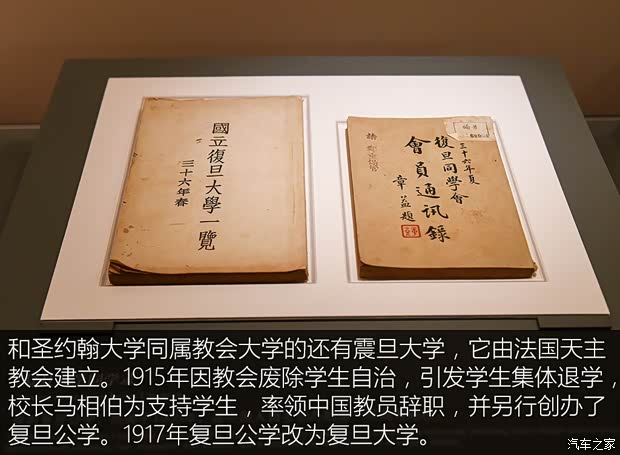 國立復旦大學一覽
三十六年春
三十六年夏
復旦同學會
會員通訊錄
章益題
和圣约翰大学同属教会大学的还有震旦大学，它由法国天主
教会建立。1915年因教会废除学生自治，引发学生集体退学，
校长马相伯为支持学生，率领中国教员辞职，并另行创办了
复旦公学。1917年复旦公学改为复旦大学。
汽车之家